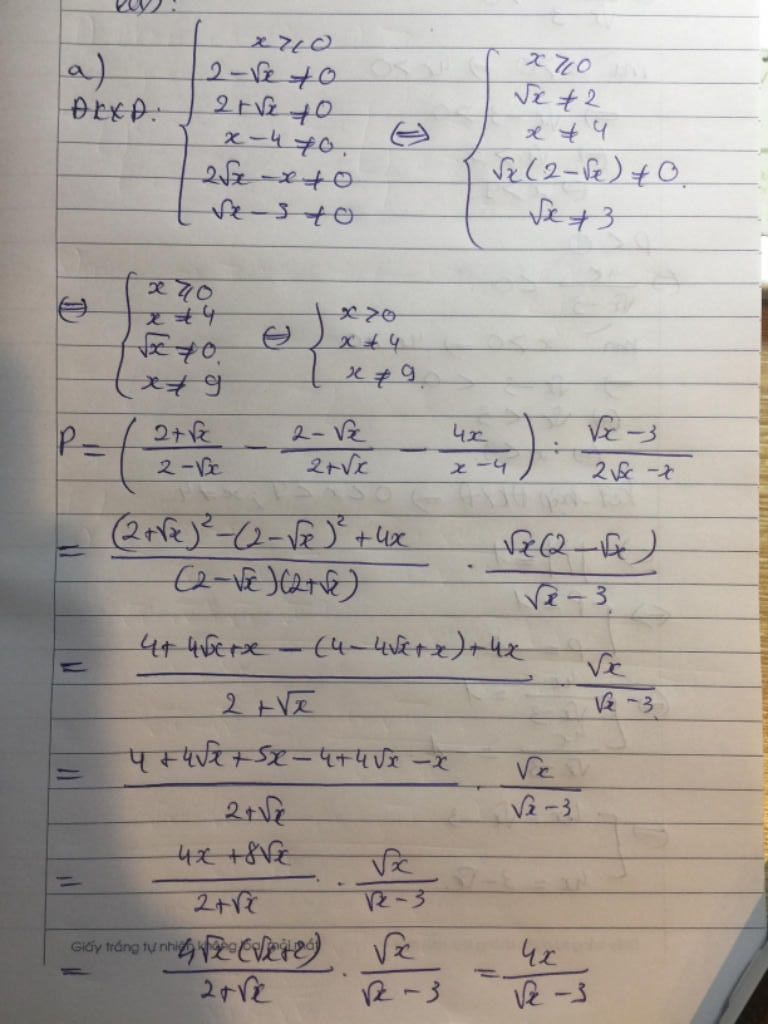 a)
ĐKXĐ: { x ⩾ 0 ; 2 - √x ≠ 0 ; 2 + √x ≠ 0 ; x - 4 ≠ 0. ; 2√x - x ≠ 0 ; √x - 3 ≠ 0 ⇔ { x ⩾ 0 ; √x ≠ 2 ; x ≠ 4 ; √x(2 - √x) ≠ 0. ; √x ≠ 3
⇔ { x ⩾ 0 ; x ≠ 4 ; √x ≠ 0. ; x ≠ 9 ⇔ { x > 0 ; x ≠ 4 ; x ≠ 9
P = ( (2+√x)/(2-√x) - (2-√x)/(2+√x) - 4x/(x-4) ) : (√x-3)/(2√x-x)
= ((2+√x)² - (2-√x)² + 4x)/((2-√x)(2+√x)) . √x(2-√x)/(√x-3)
= (4+4√x+x - (4-4√x+x)+4x)/(2+√x) . √x/(√x-3)
= (4+4√x+5x-4+4√x-x)/(2+√x) . √x/(√x-3)
= (4x+8√x)/(2+√x) . √x/(√x-3)
Giấy trắng tự nhiên không lóa mỏi mắt
= 4√x(√x+2)/(2+√x) . √x/(√x-3) = 4x/(√x-3)